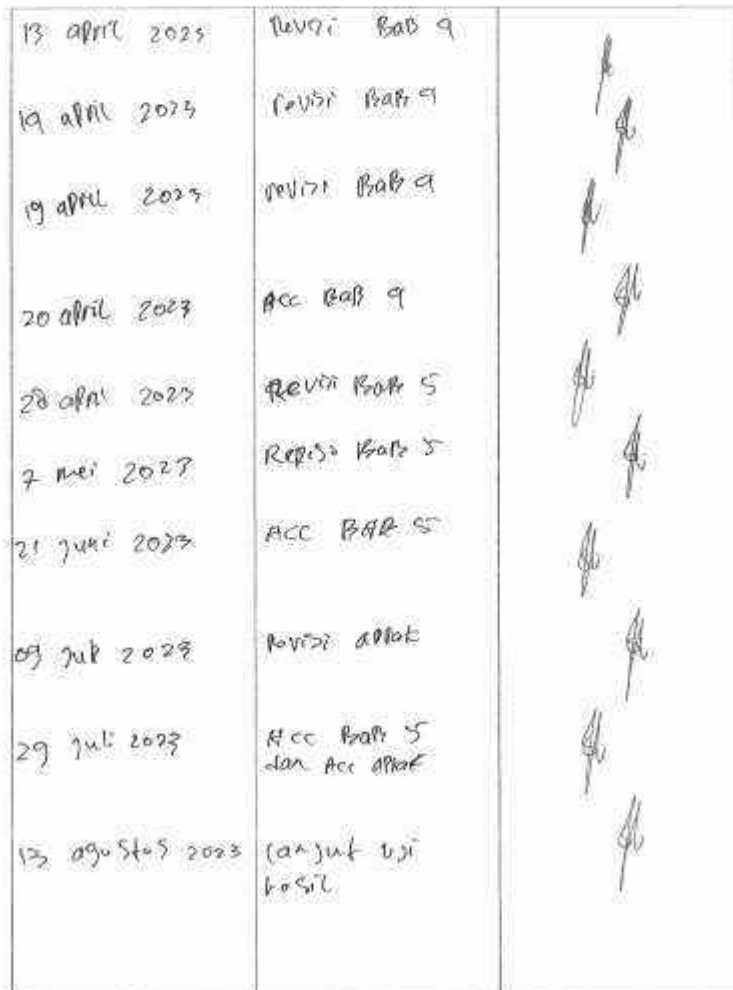 13 april 2023 Revisi BaB 4
19 april 2023 revisi BaB 4
19 april 2023 revisi BaB 4
20 april 2023 Acc BaB 4
28 april 2023 Revisi BaB 5
7 mei 2023 Repisi BaB 5
21 juni 2023 ACC BAB 5
09 juli 2023 Revisi
29 juli 2023 Acc BaB 5
dan Acc
13 agustus 2023 lanjut uji
hasil